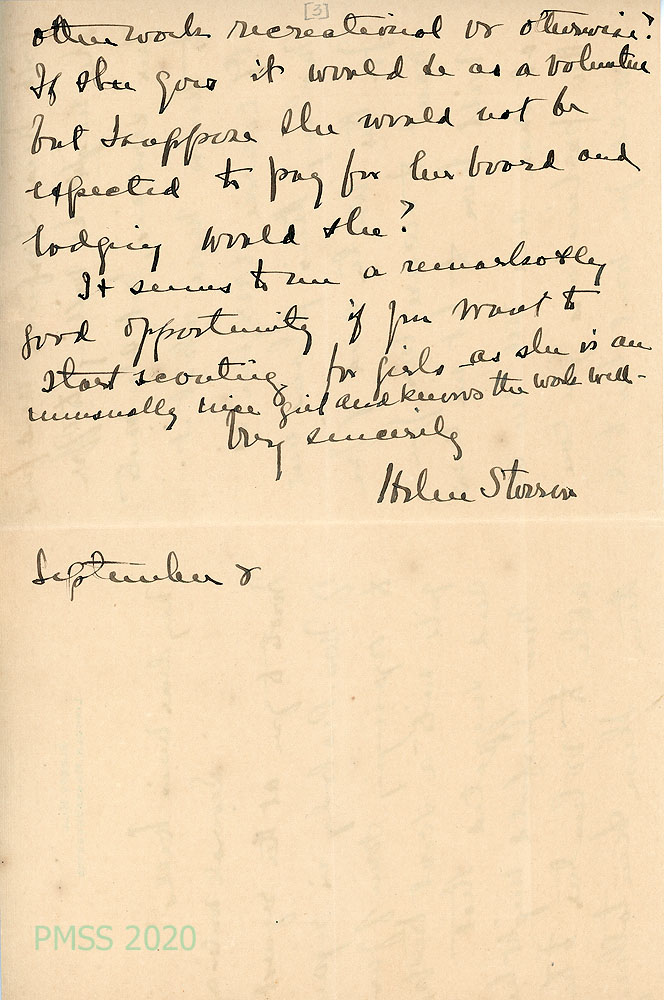 [3]
other work recreational or otherwise?
If she goes it would be as a volunteer
but I suppose she would not be
expected to pay for her board and
lodging would she?
It seems to me a remarkably
good opportunity if you want to
start scouting for girls as she is an
unusually nice girl and knows the work well-
Very sincerely
Helen Storrow
September 8
PMSS 2020